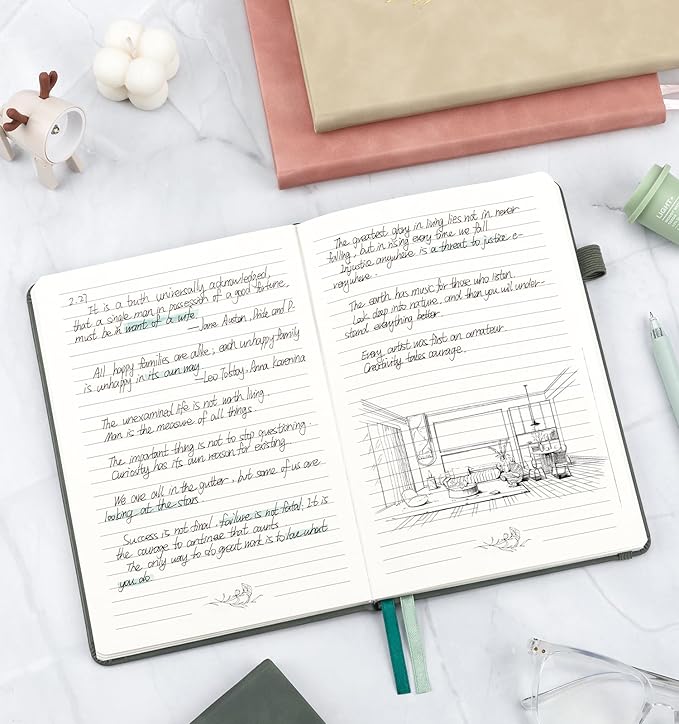 2.27
It is a truth universally acknowledged,
that a single man in possession of a good fortune,
must be in want of a wife.
— Jane Austen, Pride and P.
All happy families are alike; each unhappy family
is unhappy in its own way
— Leo Tolstoy, Anna Karenina
The unexamined life is not worth living.
Man is the measure of all things.
The important thing is not to stop questioning.
Curiosity has its own reason for existing
We are all in the gutter, but some of us are
looking at the stars
Success is not final, failure is not fatal: It is
the courage to continue that counts
The only way to do great work is to love what
you do
The greatest glory in living lies not in never
falling, but in rising every time we fall
Injustice anywhere is a threat to justice e-
verywhere.
The earth has music for those who listen.
Look deep into nature, and then you will under-
stand everything better
Every artist was first an amateur.
Creativity takes courage.
LIGHT+